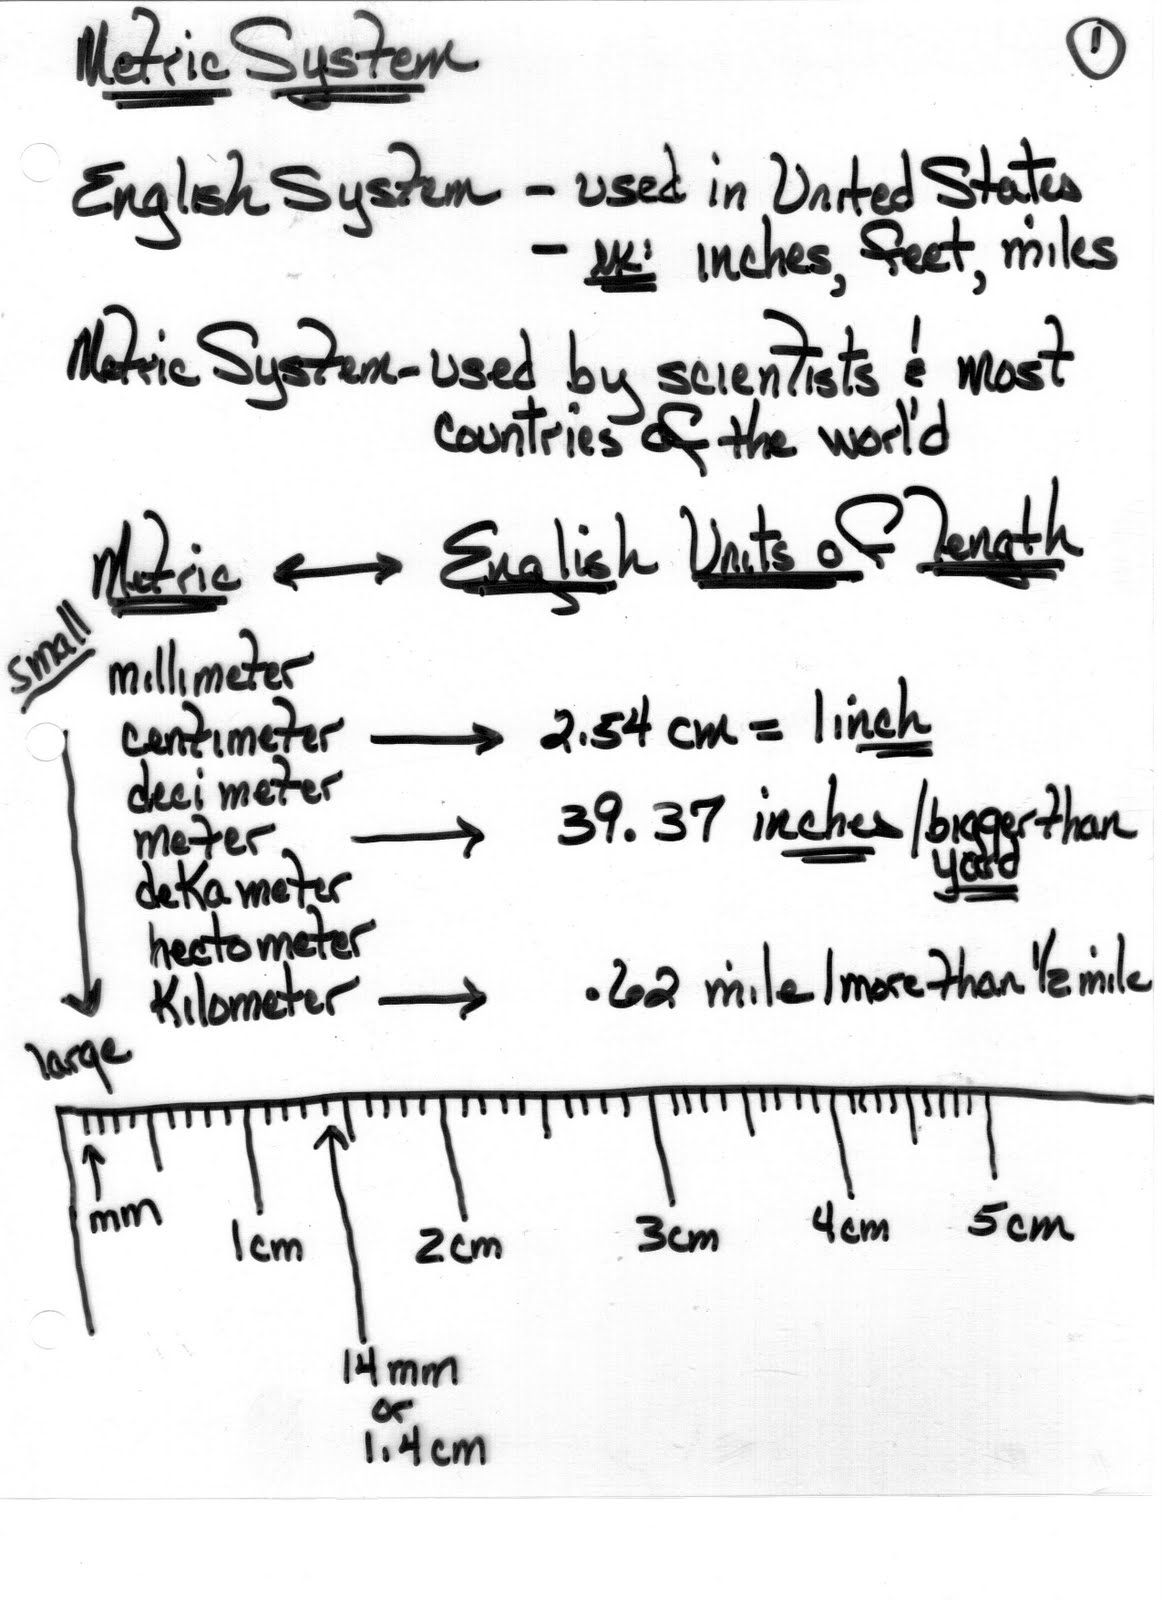 Metric System
1
English System - used in United States
- inches, feet, miles
Metric System - used by scientists & most
countries of the world
Metric ↔ English Units of Length
small
millimeter
centimeter → 2.54 cm = 1 inch
decimeter
meter → 39.37 inches / bigger than
yard
dekameter
hectometer
Kilometer → .62 mile / more than 1/2 mile
large
mm
1cm 2cm 3cm 4cm 5cm
14mm
or
1.4cm